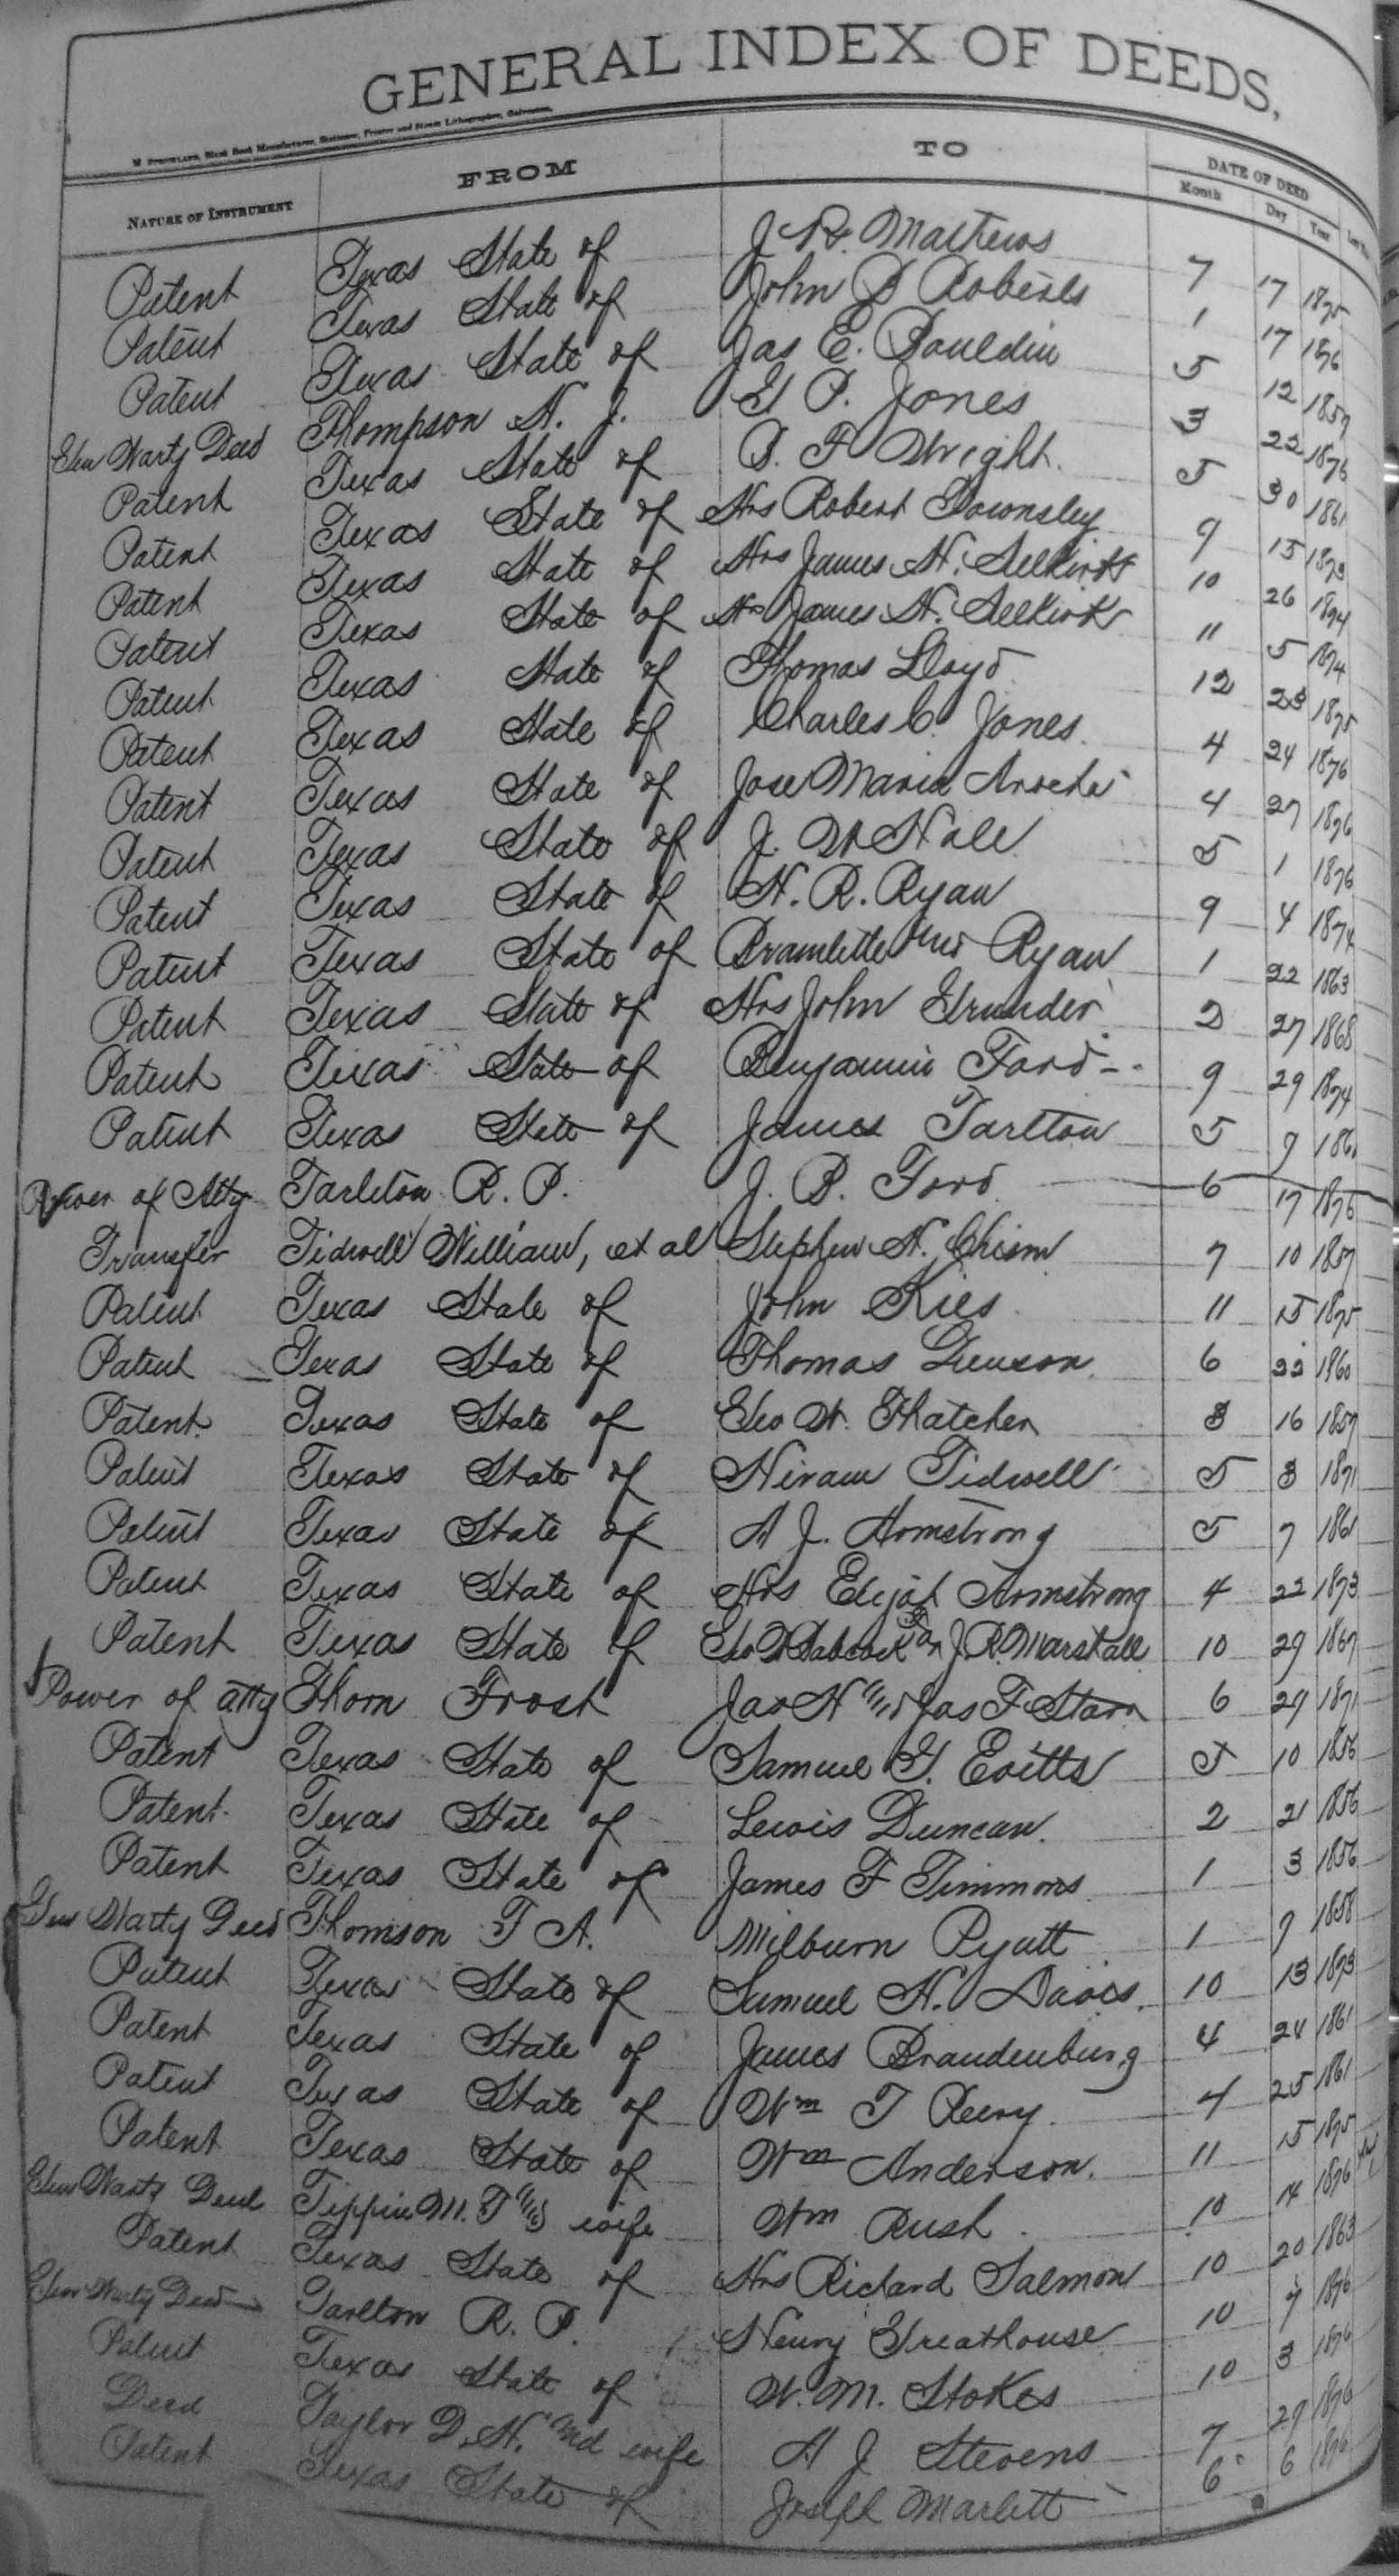 GENERAL INDEX OF DEEDS,
NATURE OF INSTRUMENT FROM TO DATE OF DEED Month Day Year
Patent Texas State of J. Mathews 7 17 1875
Patent Texas State of John B Roberts 1 17 1876
Patent Texas State of Jas E. Bouldin 5 12 1857
Gen Warty Deed Thompson H. J. G P. Jones 3 22 1876
Patent Texas State of B. F Wright. 5 30 1861
Patent Texas State of Hrs Robert Townsley 9 15 1873
Patent Texas State of Hrs James H. Selkirk 10 26 1874
Patent Texas State of Hrs James H. Selkirk 11 5 1874
Patent Texas State of Thomas Lloyd 12 23 1875
Patent Texas State of Charles C. Jones. 4 24 1876
Patent Texas State of Jose Maria Arocha 4 27 1876
Patent Texas State of J. W Hale 5 1 1876
Patent Texas State of H. R. Ryan 9 4 1874
Patent Texas State of Bramlette and Ryan 1 22 1863
Patent Texas State of Hrs John Grunder 2 27 1868
Patent Texas State of Benjamin Ford 9 29 1874
Patent Texas State of James Tarlton 5 9 1861
Power of Atty Tarleton R. P. J. B. Ford 6 17 1876
Transfer Tidwell William, et al Stephen H. Chism 7 10 1857
Patent Texas State of John Kies 11 15 1875
Patent Texas State of Thomas 6 22 1860
Patent Texas State of Geo W. Thatcher 3 16 1857
Patent Texas State of Hiram Tidwell 5 3 1871
Patent Texas State of A J. Armstrong 5 7 1861
Patent Texas State of Hrs Elijah Armstrong 4 22 1873
Patent Texas State of Geo W Babcock J. R. Marshall 10 29 1867
Power of atty Thorn Frost Jas H and Jas F Starr 6 29 1871
Patent Texas State of Samuel G. Evitts 5 10 1856
Patent Texas State of Lewis Duncan. 2 21 1856
Patent Texas State of James F Timmons 1 3 1856
Gen Warty Deed Thomson T A. Milburn Pyatt 1 9 1858
Patent Texas State of Samuel H. Davis. 10 13 1873
Patent Texas State of James Brandenburg 4 24 1861
Patent Texas State of Wm T Peery. 4 25 1861
Patent Texas State of Wm Anderson. 11 15 1875
Gen Warty Deed Tippin M. T and wife Wm Rush 10 14 1876
Patent Texas State of Hrs Richard Salmon 10 20 1863
Gen Warty Deed Tarlton R. P. Henry Greathouse 10 7 1876
Patent Texas State of W. M. Stokes 10 3 1876
Deed Taylor D. H. and wife A J Stevens 7 29 1876
Patent Texas State of Joseph Marlett 6 6 1876